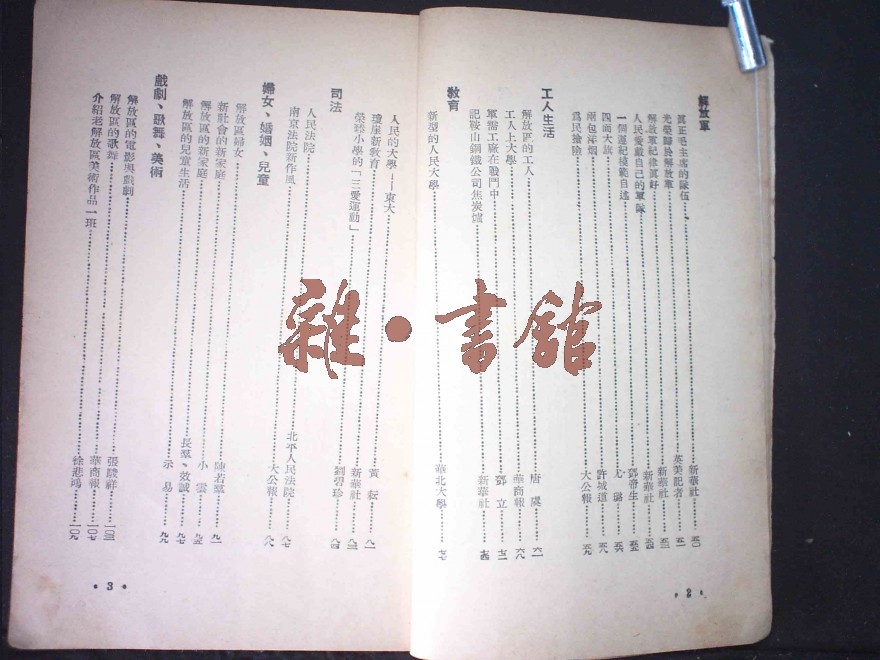 解放軍
眞正毛主席的隊伍……新華社……五〇
光榮歸於解放軍……英美記者……五一
解放軍紀律眞好……新華社……五三
人民愛戴自己的軍隊……新華社……五四
一個遵紀模範自述……鄧帝生……五五
四面大旗……尤淇……五六
兩包洋烟……許城道……五八
爲民搶險……大公報……五九
工人生活
解放區的工人……唐虞……六一
工人上大學……華商報……六八
軍需工廠在戰鬥中……鄧立……七二
記鞍山鋼鐵公司焦炭爐……新華社……七四
敎育
新型的人民大學……華北大學……七七
人民的大學——東大……黃耘……八一
瓊崖新敎育……新華社……八三
榮臻小學的「三愛運動」……劉碧珍……八四
司法
人民法院……北平人民法院……八七
南京法院新作風……大公報……八八
婦女、婚姻、兒童
解放區婦女……陳若羣……九一
新社會的新家庭……小雲……九五
解放區的新家庭……長羣、效誠……九七
解放區的兒童生活……示易……九九
戲劇、歌舞、美術
解放區的電影與戲劇……張駿祥……一〇三
解放區的歌舞……華商報……一〇七
介紹老解放區美術作品一班……徐悲鴻……一〇九
• 2 •
• 3 •
雜·書舘